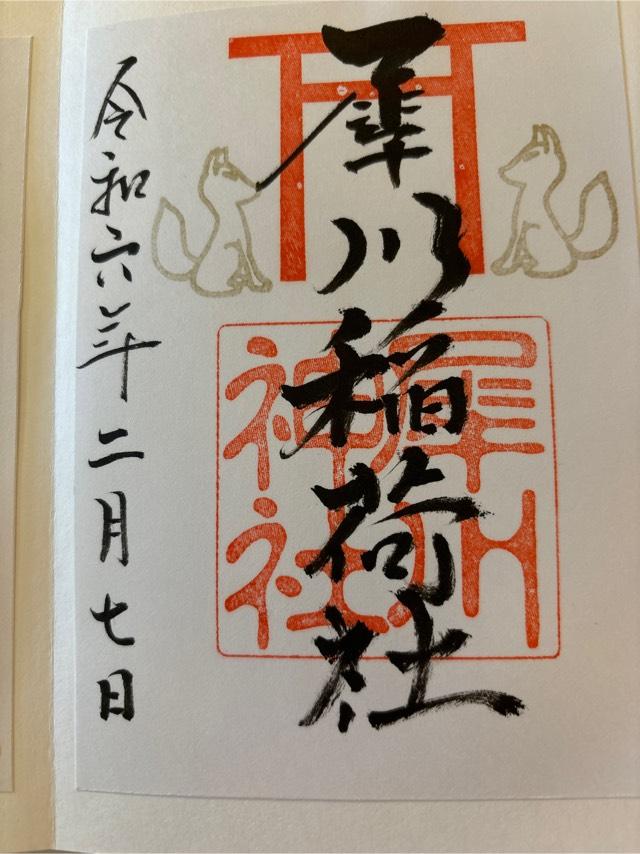 犀川稲荷社
犀川
神社
令和六年二月七日